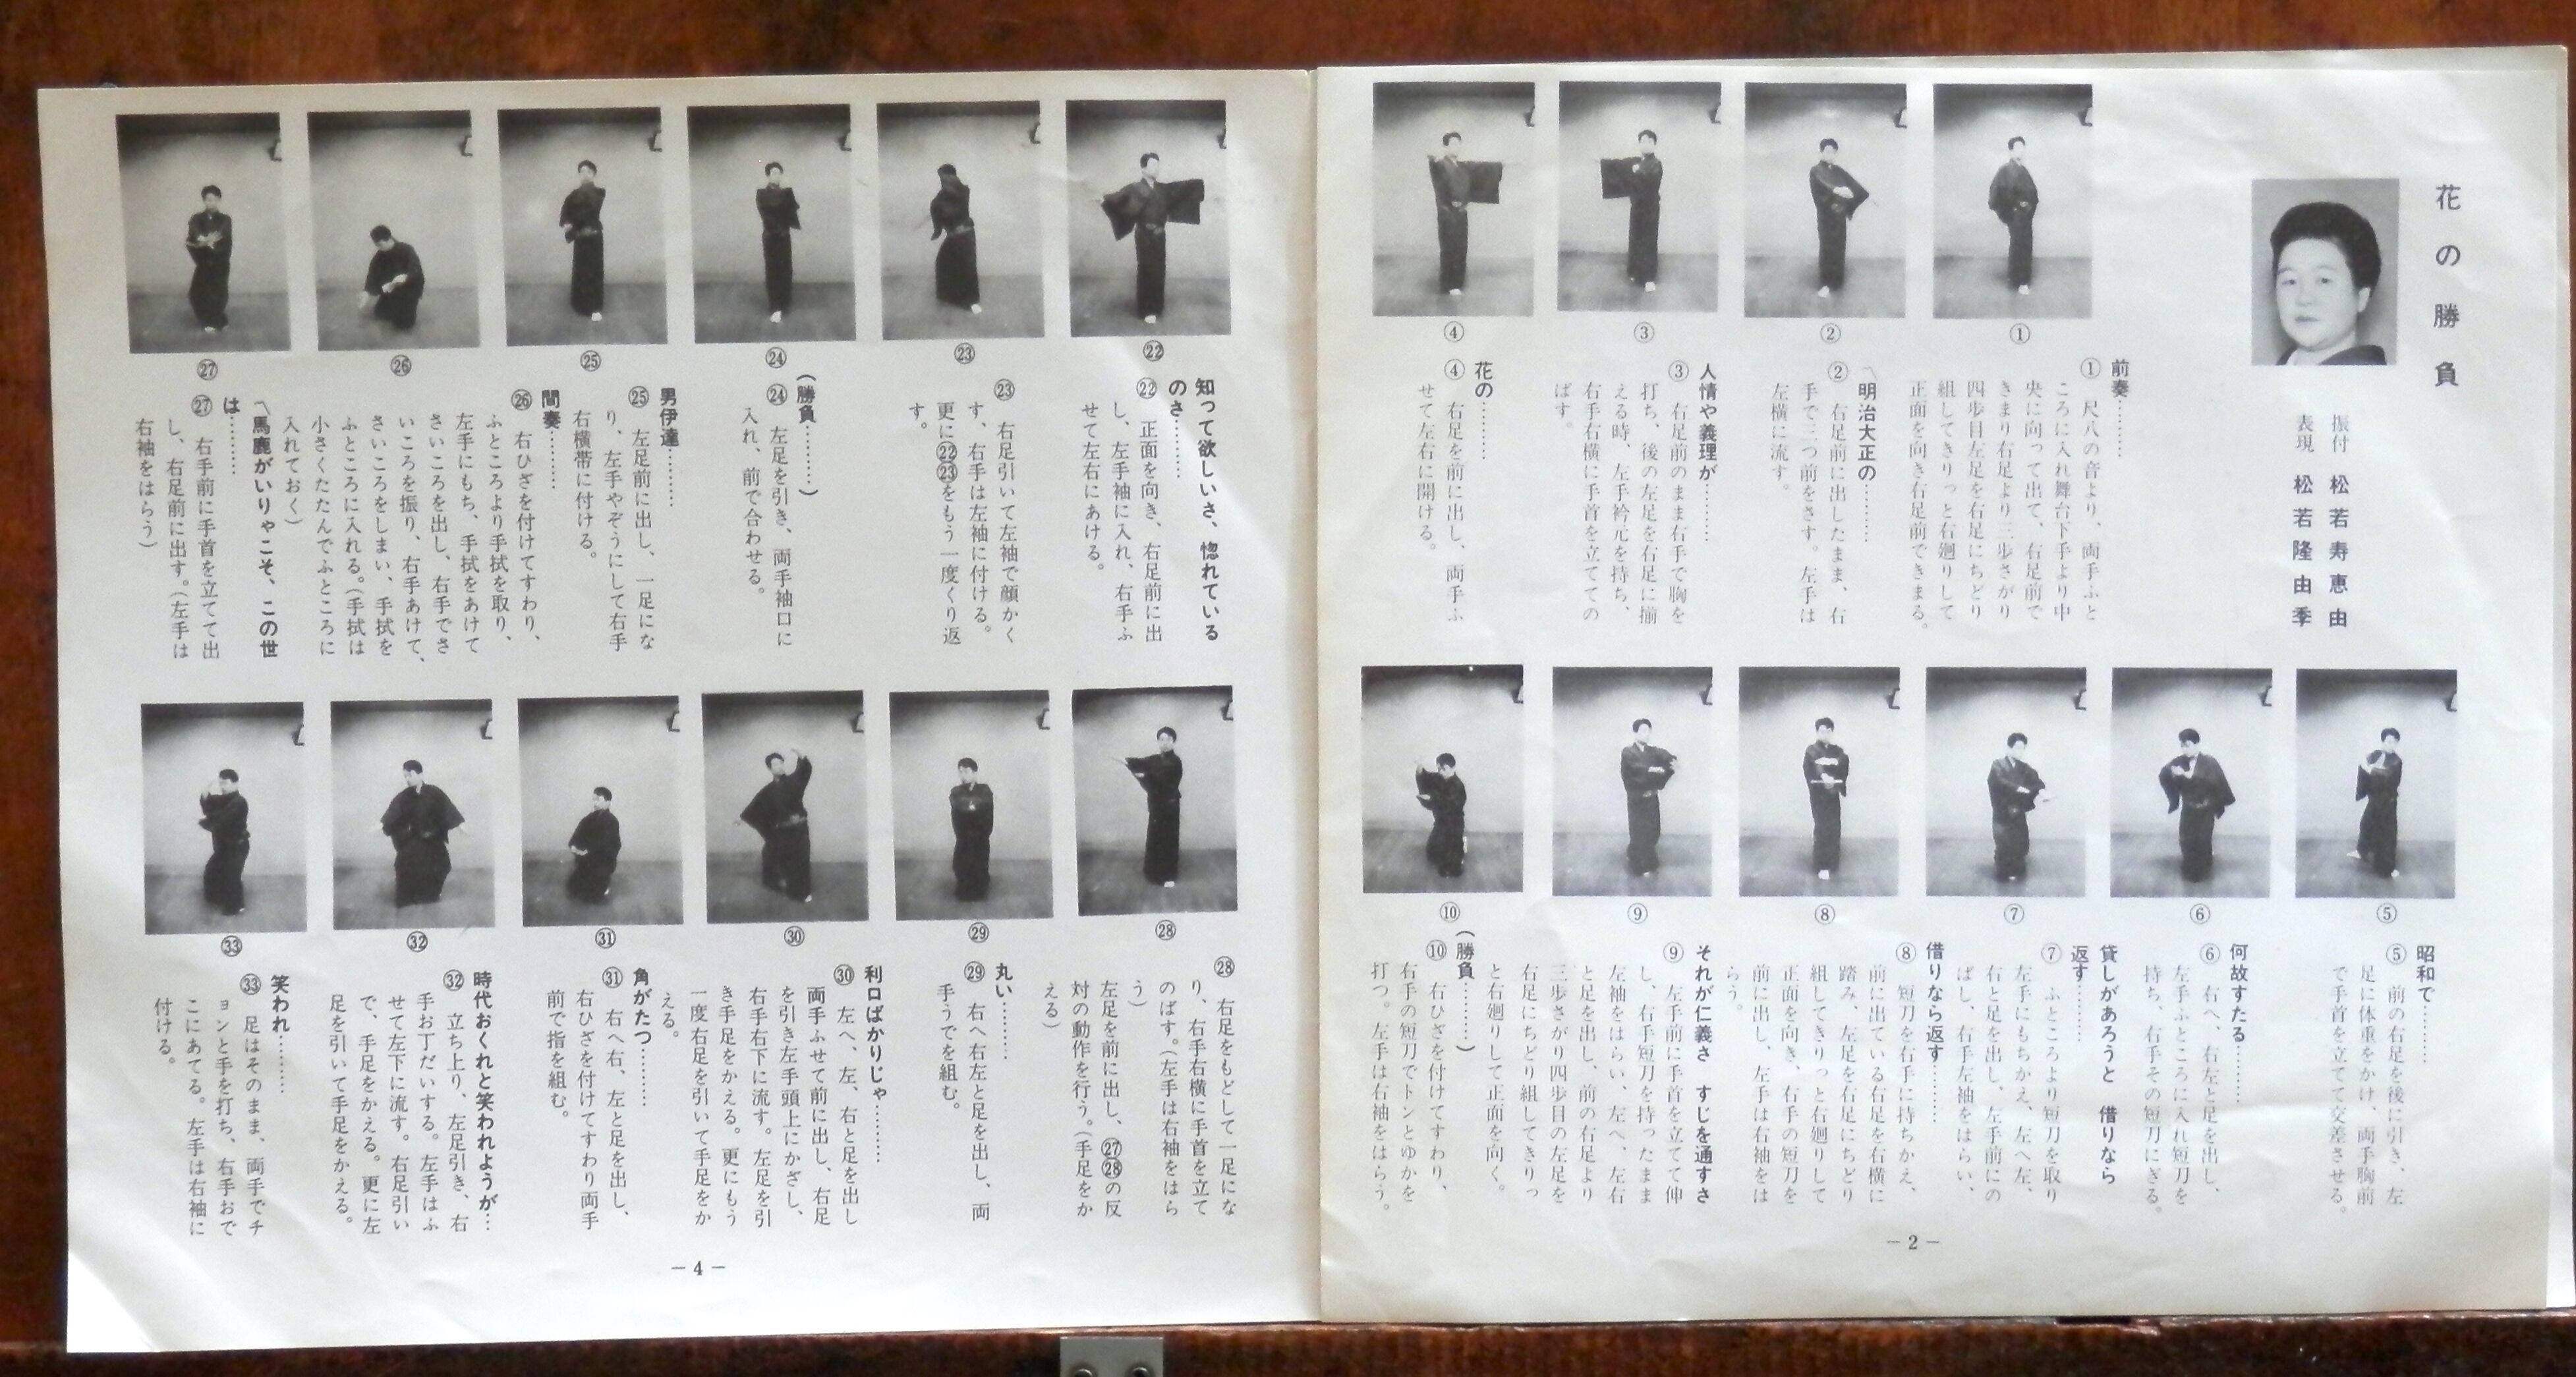 花の勝負
振付　松若寿恵由
表現　松若隆由季
前奏…………
①　尺八の音より、両手ふと
ころに入れ舞台下手より中
央に向って出て、右足前で
きまり右足より三歩さがり
四歩目左足を右足にちどり
組してきりっと右廻りして
正面を向き右足前できまる。
①
〽明治大正の…………
②　右足前に出したまま、右
手で三つ前をさす。左手は
左横に流す。
②
人情や義理が…………
③　右足前のまま右手で胸を
打ち、後の左足を右足に揃
える時、左手衿元を持ち、
右手右横に手首を立ての
ばす。
③
花の…………
④　右足を前に出し、両手ふ
せて左右に開ける。
④
昭和で…………
⑤　前の右足を後に引き、左
足に体重をかけ、両手胸前
で手首を立てて交差させる。
⑤
何故すたる…………
⑥　右へ、右左と足を出し、
左手ふところに入れ短刀を
持ち、右手その短刀にぎる。
⑥
貸しがあろうと　借りなら
返す…………
⑦　ふところより短刀を取り
左手にもちかえ、左へ左、
右と足を出し、左手前にの
ばし、右手左袖をはらい、
⑦
借りなら返す…………
⑧　短刀を右手に持ちかえ、
前に出ている右足を右横に
踏み、左足を右足にちどり
組してきりっと右廻りして
正面を向き、右手の短刀を
前に出し、左手は右袖をは
らう。
⑧
それが仁義さ　すじを通すさ
⑨　左手前に手首を立てて伸
し、右手短刀を持ったまま
左袖をはらい、左へ、左右
と足を出し、前の右足より
三歩さがり四歩目の左足を
右足にちどり組してきりっ
と右廻りして正面を向く。
⑨
（勝負…………）
⑩　右ひざを付けてすわり、
右手の短刀でトンとゆかを
打つ。左手は右袖をはらう。
⑩
－2－
知って欲しいさ、惚れている
のさ…………
㉒　正面を向き、右足前に出
し、左手袖に入れ、右手ふ
せて左右にあける。
㉒
㉓　右足引いて左袖で顔かく
す、右手は左袖に付ける。
更に㉒㉓をもう一度くり返
す。
㉓
（勝負…………）
㉔　左足を引き、両手袖口に
入れ、前で合わせる。
㉔
男伊達…………
㉕　左足前に出し、一足にな
り、左手やぞうにして右手
右横帯に付ける。
㉕
間奏…………
㉖　右ひざを付けてすわり、
ふところより手拭を取り、
左手にもち、手拭をあけて
さいころを出し、右手でさ
いころを振り、右手あけて、
さいころをしまい、手拭を
ふところに入れる。（手拭は
小さくたたんでふところに
入れておく）
㉖
〽馬鹿がいりゃこそ、この世
は…………
㉗　右手前に手首を立てて出
し、右足前に出す。（左手は
右袖をはらう）
㉗
㉘　右足をもどして一足にな
り、右手右横に手首を立て
のばす。（左手は右袖をはら
う）
左足を前に出し、㉗㉘の反
対の動作を行う。（手足をか
える）
㉘
丸い…………
㉙　右へ右左と足を出し、両
手うでを組む。
㉙
利口ばかりじゃ…………
㉚　左へ、左、右と足を出し
両手ふせて前に出し、右足
を引き左手頭上にかざし、
右手右下に流す。左足を引
き手足をかえる。更にもう
一度右足を引いて手足をか
える。
㉚
角がたつ…………
㉛　右へ右、左と足を出し、
右ひざを付けてすわり両手
前で指を組む。
㉛
時代おくれと笑われようが…
㉜　立ち上り、左足引き、右
手お丁だいする。左手はふ
せて左下に流す。右足引い
で、手足をかえる。更に左
足を引いて手足をかえる。
㉜
笑われ…………
㉝　足はそのまま、両手でチ
ョンと手を打ち、右手おで
こにあてる。左手は右袖に
付ける。
㉝
－4－